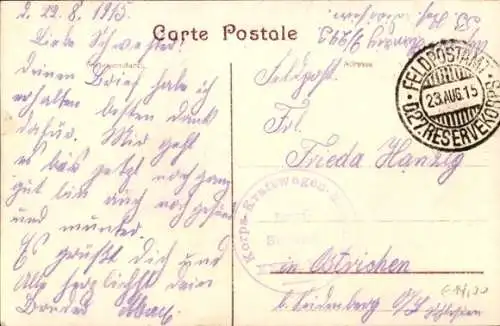 d. 22.8.1915
Carte Postale
Liebe Schwester!
Deinen Brief habe ich
erhalten besten Dank
dafür. Mir geht
es bis jetzt noch ganz
gut bin auch noch gesund
und munter.
Es grüßt Dich und
Alle herzlichst dein
Bruder Max
Feldpost.
Adresse
Frl.
Frieda Hanzig
in Ostrichen
b. Seidenberg O/L
Schlesien
FELDPOSTAMT
23.AUG.15
D.27.RESERVEKORPS
Korps-Kraftwagen-